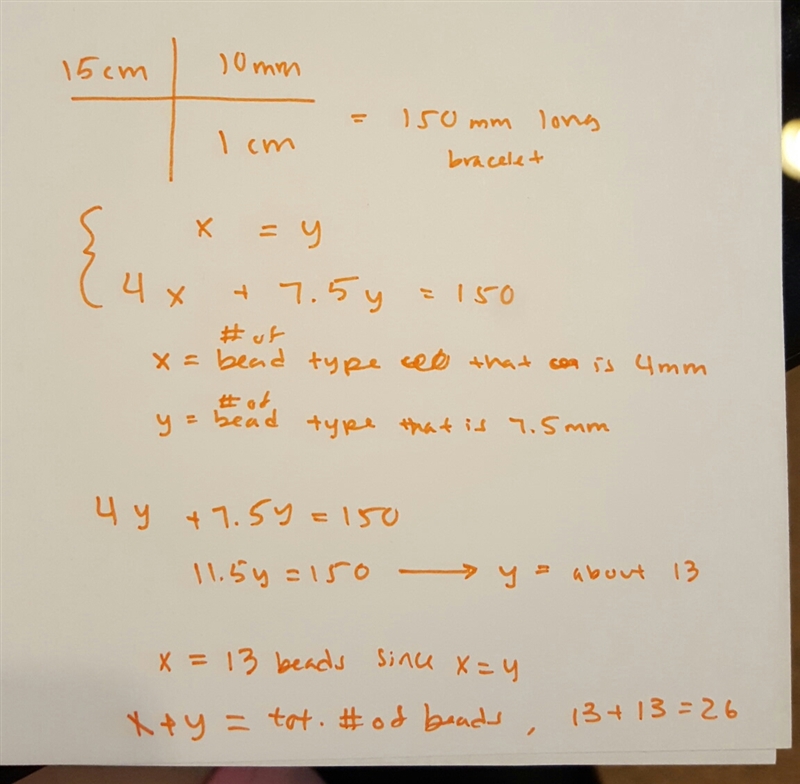 15cm | 10mm
1 cm = 150 mm long
bracelet
{ x = y
4x + 7.5y = 150
# of
x = bead type that is 4mm
# of
y = bead type that is 7.5mm
4y + 7.5y = 150
11.5y = 150 → y = about 13
x = 13 beads since x = y
x + y = tot. # of beads, 13 + 13 = 26